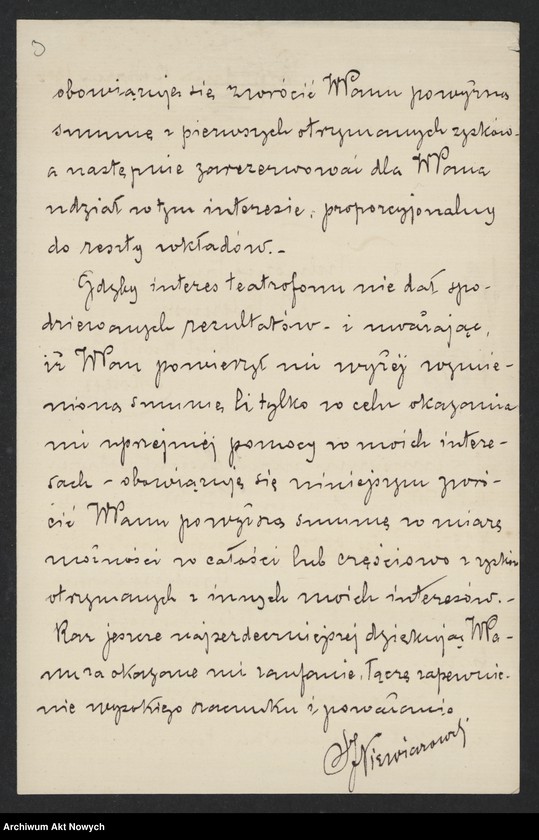 3
obowiązuję się zwrócić WPanu powyższą
summę z pierwszych otrzymanych zysków-
a następnie zarezerwować dla WPana
udział w tym interesie, proporcyjonalny
do reszty wkładów.-
Gdyby interes teatrofonu nie dał spo-
dziewanych rezultatów- i uważając,
iż WPan powierzył mi wyżéj wymie-
nioną summę li tylko w celu okazania
mi uprzejméj pomocy w moich intere-
sach - obowiązuję się niniejszym zwró-
cić WPanu powyższą summę w miarę
możności w całości lub częściowo z zysków
otrzymanych z innych moich interesów.-
Raz jeszcze najserdeczniejszej dziękując WPa-
nu za okazane mi zaufanie, łączę zapewnie-
nie wysokiego szacunku i poważania
Niewiarowski
Archiwum Akt Nowych